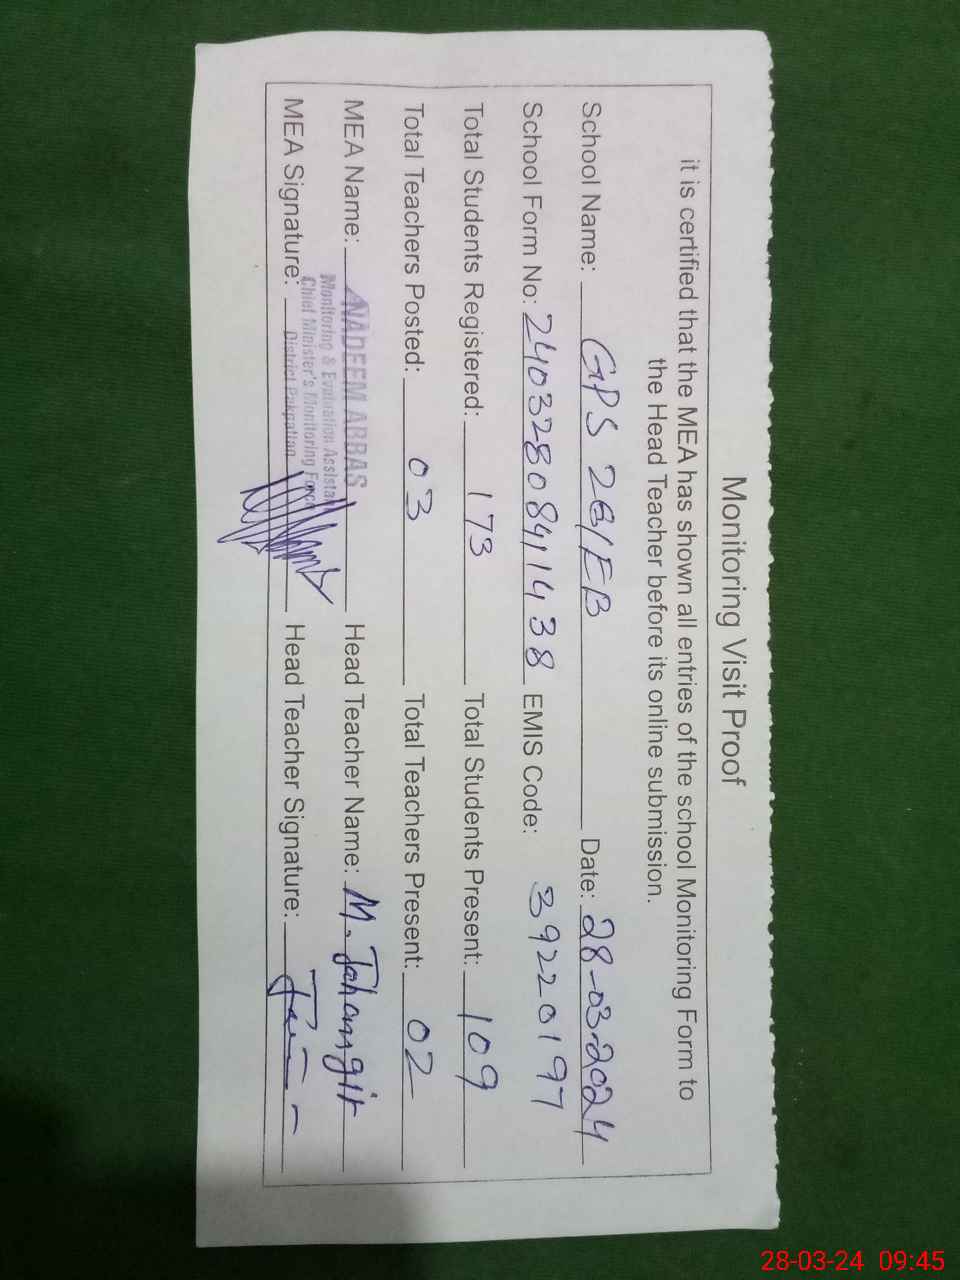 Monitoring Visit Proof
it is certified that the MEA has shown all entries of the school Monitoring Form to
the Head Teacher before its online submission.
School Name: GPS 26/EB Date: 28-03-2024
School Form No: 2403280841438 EMIS Code: 39220197
Total Students Registered: 173 Total Students Present: 109
Total Teachers Posted: 03 Total Teachers Present: 02
MEA Name: NADEEM ABBAS Head Teacher Name: M. Jahangir
Monitoring & Evaluation Assistant
Chief Minister's Monitoring Force
District Pakpattan
MEA Signature: Head Teacher Signature:
28-03-24 09:45